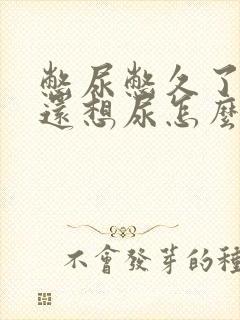 憋尿憋久了
還想尿怎麼
不會發芽的種